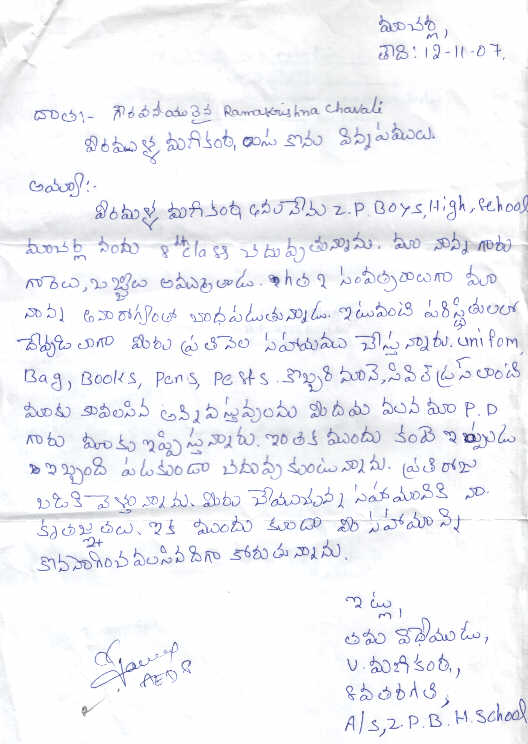 మాచర్ల,
తాది: 12-11-07.
దాత:- గౌరవనీయులైన Ramakrishna Chavali
వీరముళ్ళ మణికంఠ, అను కొను విన్నపములు.
అమ్మా:-
వీరముళ్ళ మణికంఠ అనబడేను Z.P. Boys, High, School
మాచర్ల నందు 8th class చదువుతున్నాను. మా నాన్న గారు
గారలు, బజ్జీలు అమ్ముతాడు. గత 2 సంవత్సరాలుగా మా
నాన్న అనారోగ్యంతో బాధపడుతున్నాడు. ఇటువంటి పరిస్థితులలో
దేవుడి లాగా మీరు ప్రతినెల సహాయము చేస్తున్నారు. Unifom,
Bag, Books, Pens, Pests కొబ్బరి నూనె, సివిల్ డ్రస్ లాంటి
మాకు కావలసిన అన్ని వస్తువులను మీ దయ వలన మా P.D
గారు మాకు ఇప్పిస్తున్నారు. ఇంతకు ముందు కంటె ఇప్పుడు
ఇబ్బంది పడకుండా చదువుకుంటున్నాను. ప్రతిరోజు
బడికి వెళ్తున్నాను. మీరు చేయుచున్న సహాయానికి నా
కృతజ్ఞతలు. ఇక ముందు కూడా మీ సహాయాన్ని
కొనసాగించవలసినదిగా కోరుతున్నాను.
ఇట్లు,
తమ విధేయుడు,
V. మణికంఠ,
8వతరగతి,
A/s, Z.P.B.H. School